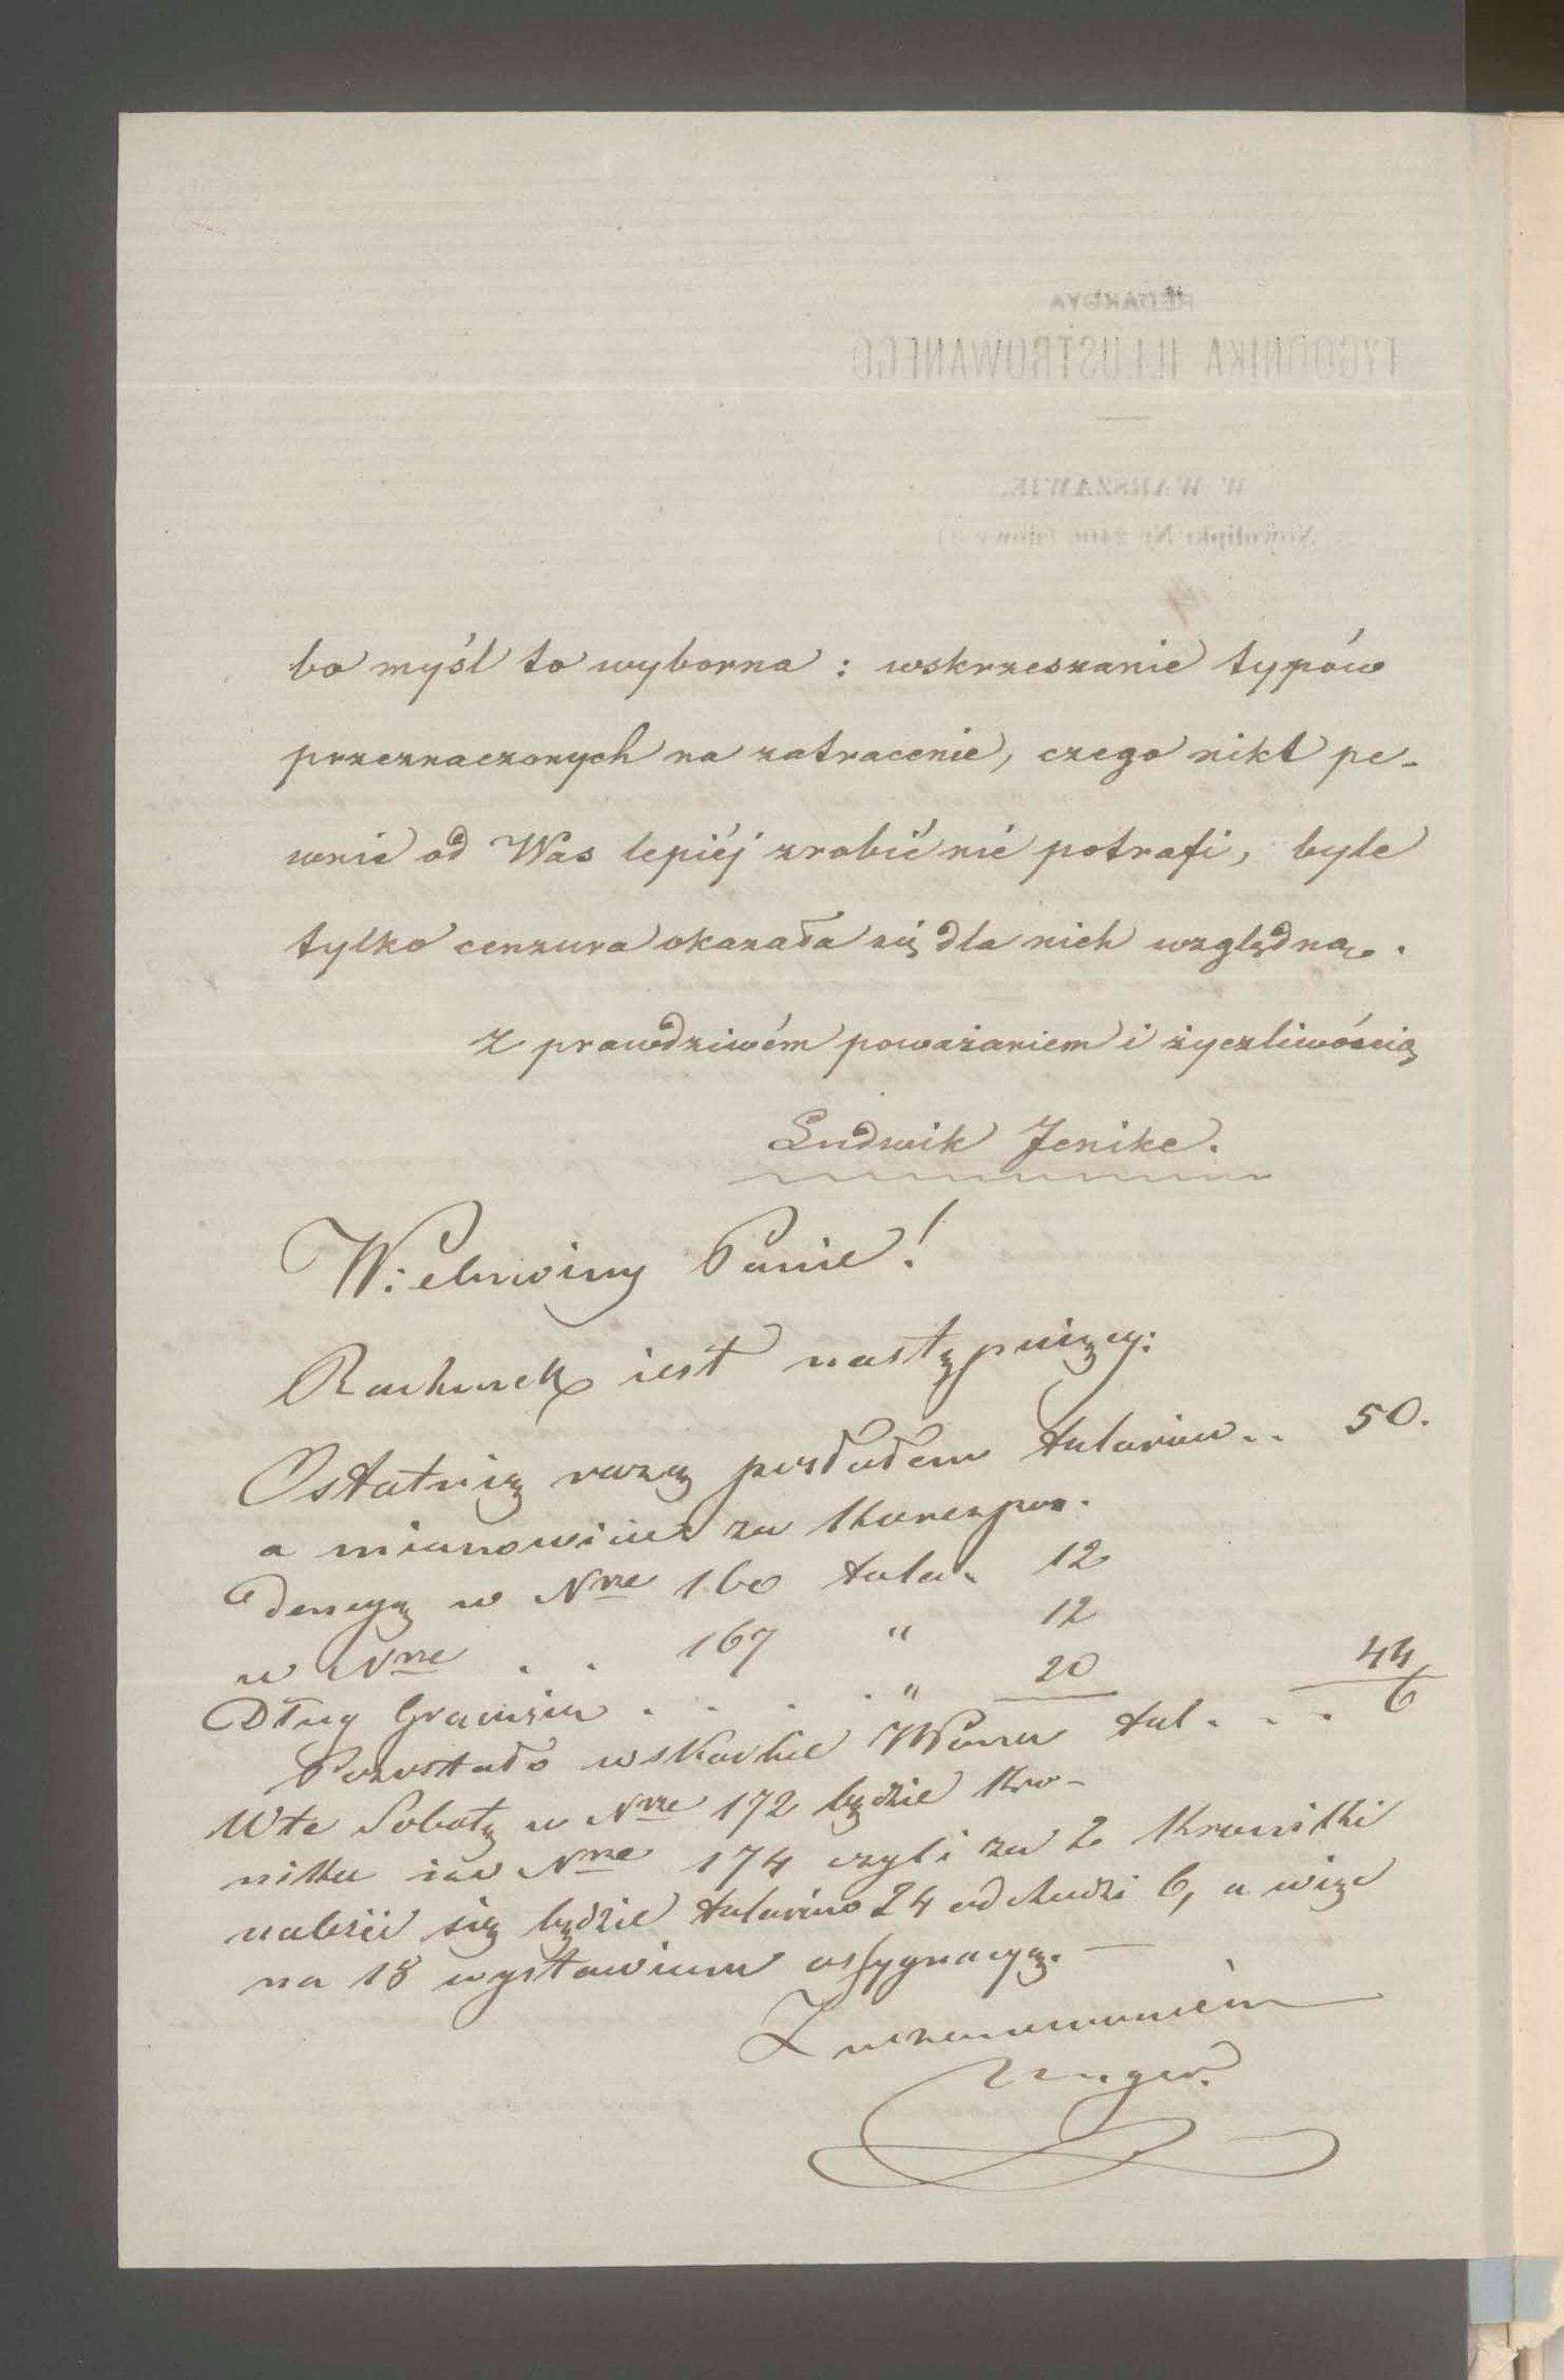 bo myśl to wyborna: wskrzeszanie typów
przeznaczonych na zatracenie, czego nikt pe-
wnie od Was lepiéj zrobić nie potrafi, byle
tylko cenzura okazała się dla nich względną.
Z prawdziwém poważaniem i życzliwością
Ludwik Jenike.
Wielmożny Panie!
Rachunek jest następujący:
Ostatnią razą posłałem talarów .. 50.
a mianowicie za Korespon-
dencyą w Nrze 160 tala. 12
w Nrze . . 167 " 12
Dług . . . . " 20 44
Pozostało w skarbie WPana tal. . . 6
W tę Sobotę w Nrze 172 będzie Kro-
nika i w Nrze 174 czyli za 2 Kroniki
należeć się będzie talarów 24 odchodzi 6, a więc
na 18 wystawiam assygnacyą. —
Z uszanowaniem
Unger.